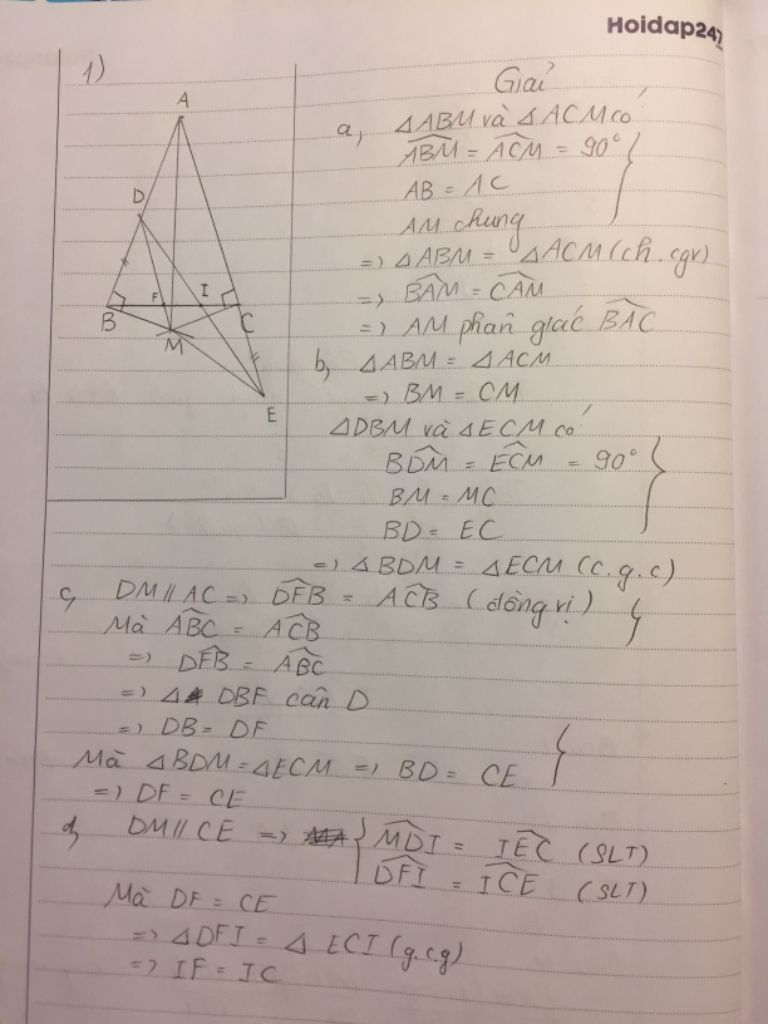 Hoidap247
1)
A
D
F
I
B
C
M
E
Giải
a, △ABM và △ACM có
ABM̂ = ACM̂ = 90°
AB = AC
AM chung
=> △ABM = △ACM (ch. cgv)
=> BAM̂ = CAM̂
=> AM phân giác BAĈ
b, △ABM = △ACM
=> BM = CM
△DBM và △ECM có
BDM̂ = ECM̂ = 90°
BM = MC
BD = EC
=> △BDM = △ECM (c.g.c)
c, DM // AC => DFB̂ = ACB̂ (đồng vị)
Mà ABĈ = ACB̂
=> DFB̂ = ABĈ
=> △ DBF cân D
=> DB = DF
Mà △BDM = △ECM => BD = CE
=> DF = CE
d, DM // CE => MDÎ = IEĈ (SLT)
DFÎ = ICÊ (SLT)
Mà DF = CE
=> △DFI = △ ECI (g.c.g)
=> IF = IC